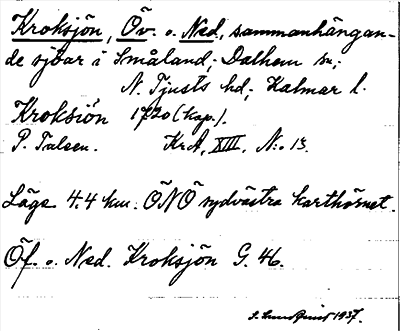 Kroksjön, Öv. o. Ned., sammanhängan-
de sjöar i Småland; Dalhem sn;
N. Tjusts hd; Kalmar l.
Kroksiön 1720 (kop.).
P. Taleen. KrA, XIII, N:o 13.
Läge 4.4 km. ÖNÖ sydvästra karthörnet.
Öf. o. Ned. Kroksjön G. 46.
1937.